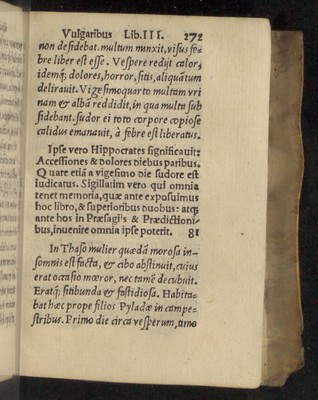 Vulgaribus Lib. III. 272
non desidebat. multum minxit, visus fe-
bre liber est esse. Vespere redijt calor,
idemq; dolores, horror, sitis, aliquãtum
delirauit. Vigesimoquarto multam vri
nam & albã reddidit, in qua multa sub
sidebant. sudor ei toto corpore copiose
calidus emanauit, à febre est liberatus.
Ipse vero Hippocrates significauit:
Accessiones & dolores diebus paribus.
Quare etiã a vigesimo die sudore est
iudicatus. Sigillatim vero qui omnia
tenet memoria, quæ ante exposuimus
hoc libro, & superioribus duobus: atq;
ante hos in Præsagijs & Prædictioni-
bus, inuenire omnia ipse poterit. 81
In Thaso mulier quædã morosa in-
somnis est facta, & cibo abstinuit, cuius
erat occasio mœror, nec tamẽ decubuit.
Eratq; sitibunda & fastidiosa. Habita-
bat hæc prope filios Pyladæ in campe-
stribus. Primo die circa vesperum, timo